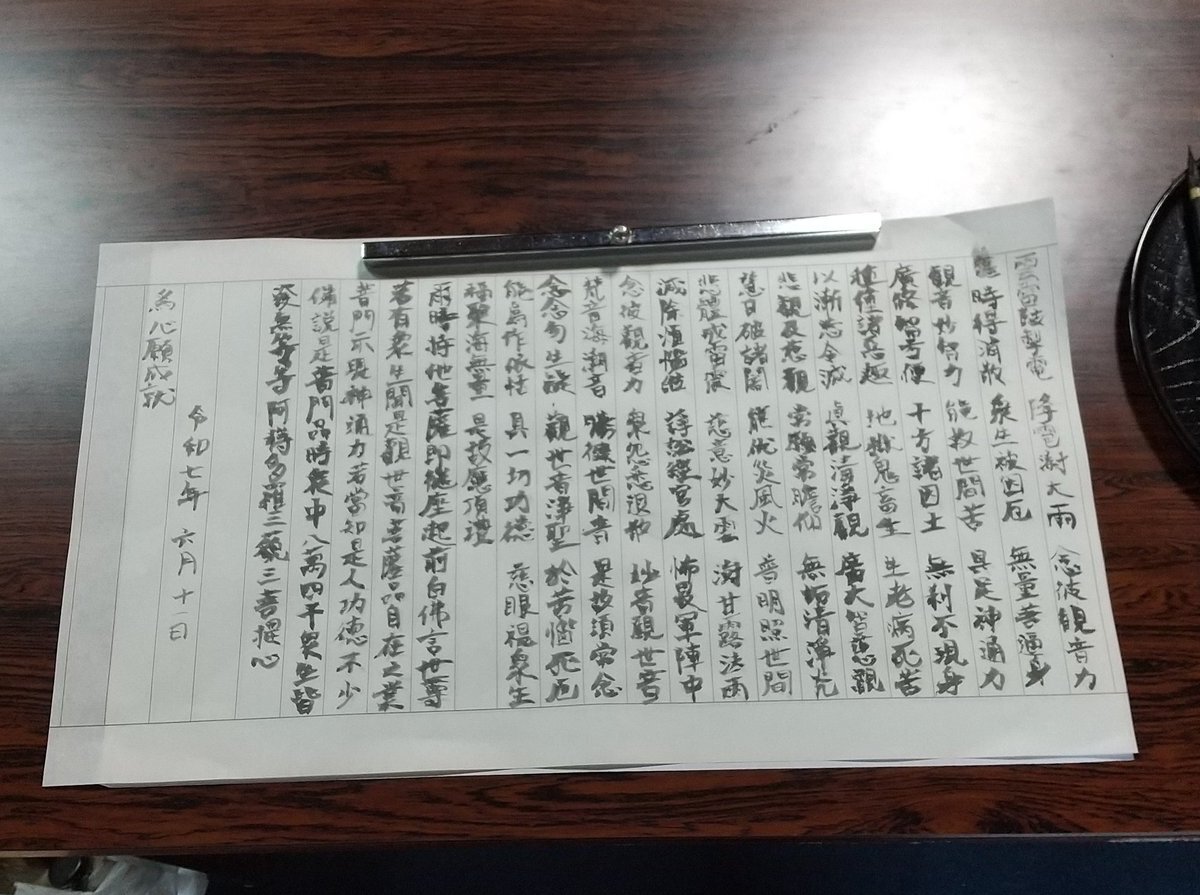 雲雷鼓掣電 降雹澍大雨 念彼観音力
應時得消散 衆生被困厄 無量苦逼身
観音妙智力 能救世間苦 具足神通力
廣修智方便 十方諸国土 無刹不現身
種種諸悪趣 地獄鬼畜生 生老病死苦
以漸悉令滅 真観清浄観 廣大智慧観
悲観及慈観 常願常瞻仰 無垢清浄光
慧日破諸闇 能伏災風火 普明照世間
悲體戒雷震 慈意妙大雲 澍甘露法雨
滅除煩悩焔 諍訟經官處 怖畏軍陣中
念彼観音力 衆怨悉退散 妙音観世音
梵音海潮音 勝彼世間音 是故須常念
念念勿生疑 観世音浄聖 於苦悩死厄
能為作依怙 具一切功徳 慈眼視衆生
福聚海無量 是故應頂禮
爾時持地菩薩即従座起前白佛言世尊
若有衆生聞是観世音菩薩品自在之業
普門示現神通力者當知是人功徳不少
佛説是普門品時衆中八萬四千衆生皆
發無等等阿耨多羅三藐三菩提心
令和七年 六月十一日
為心願成就